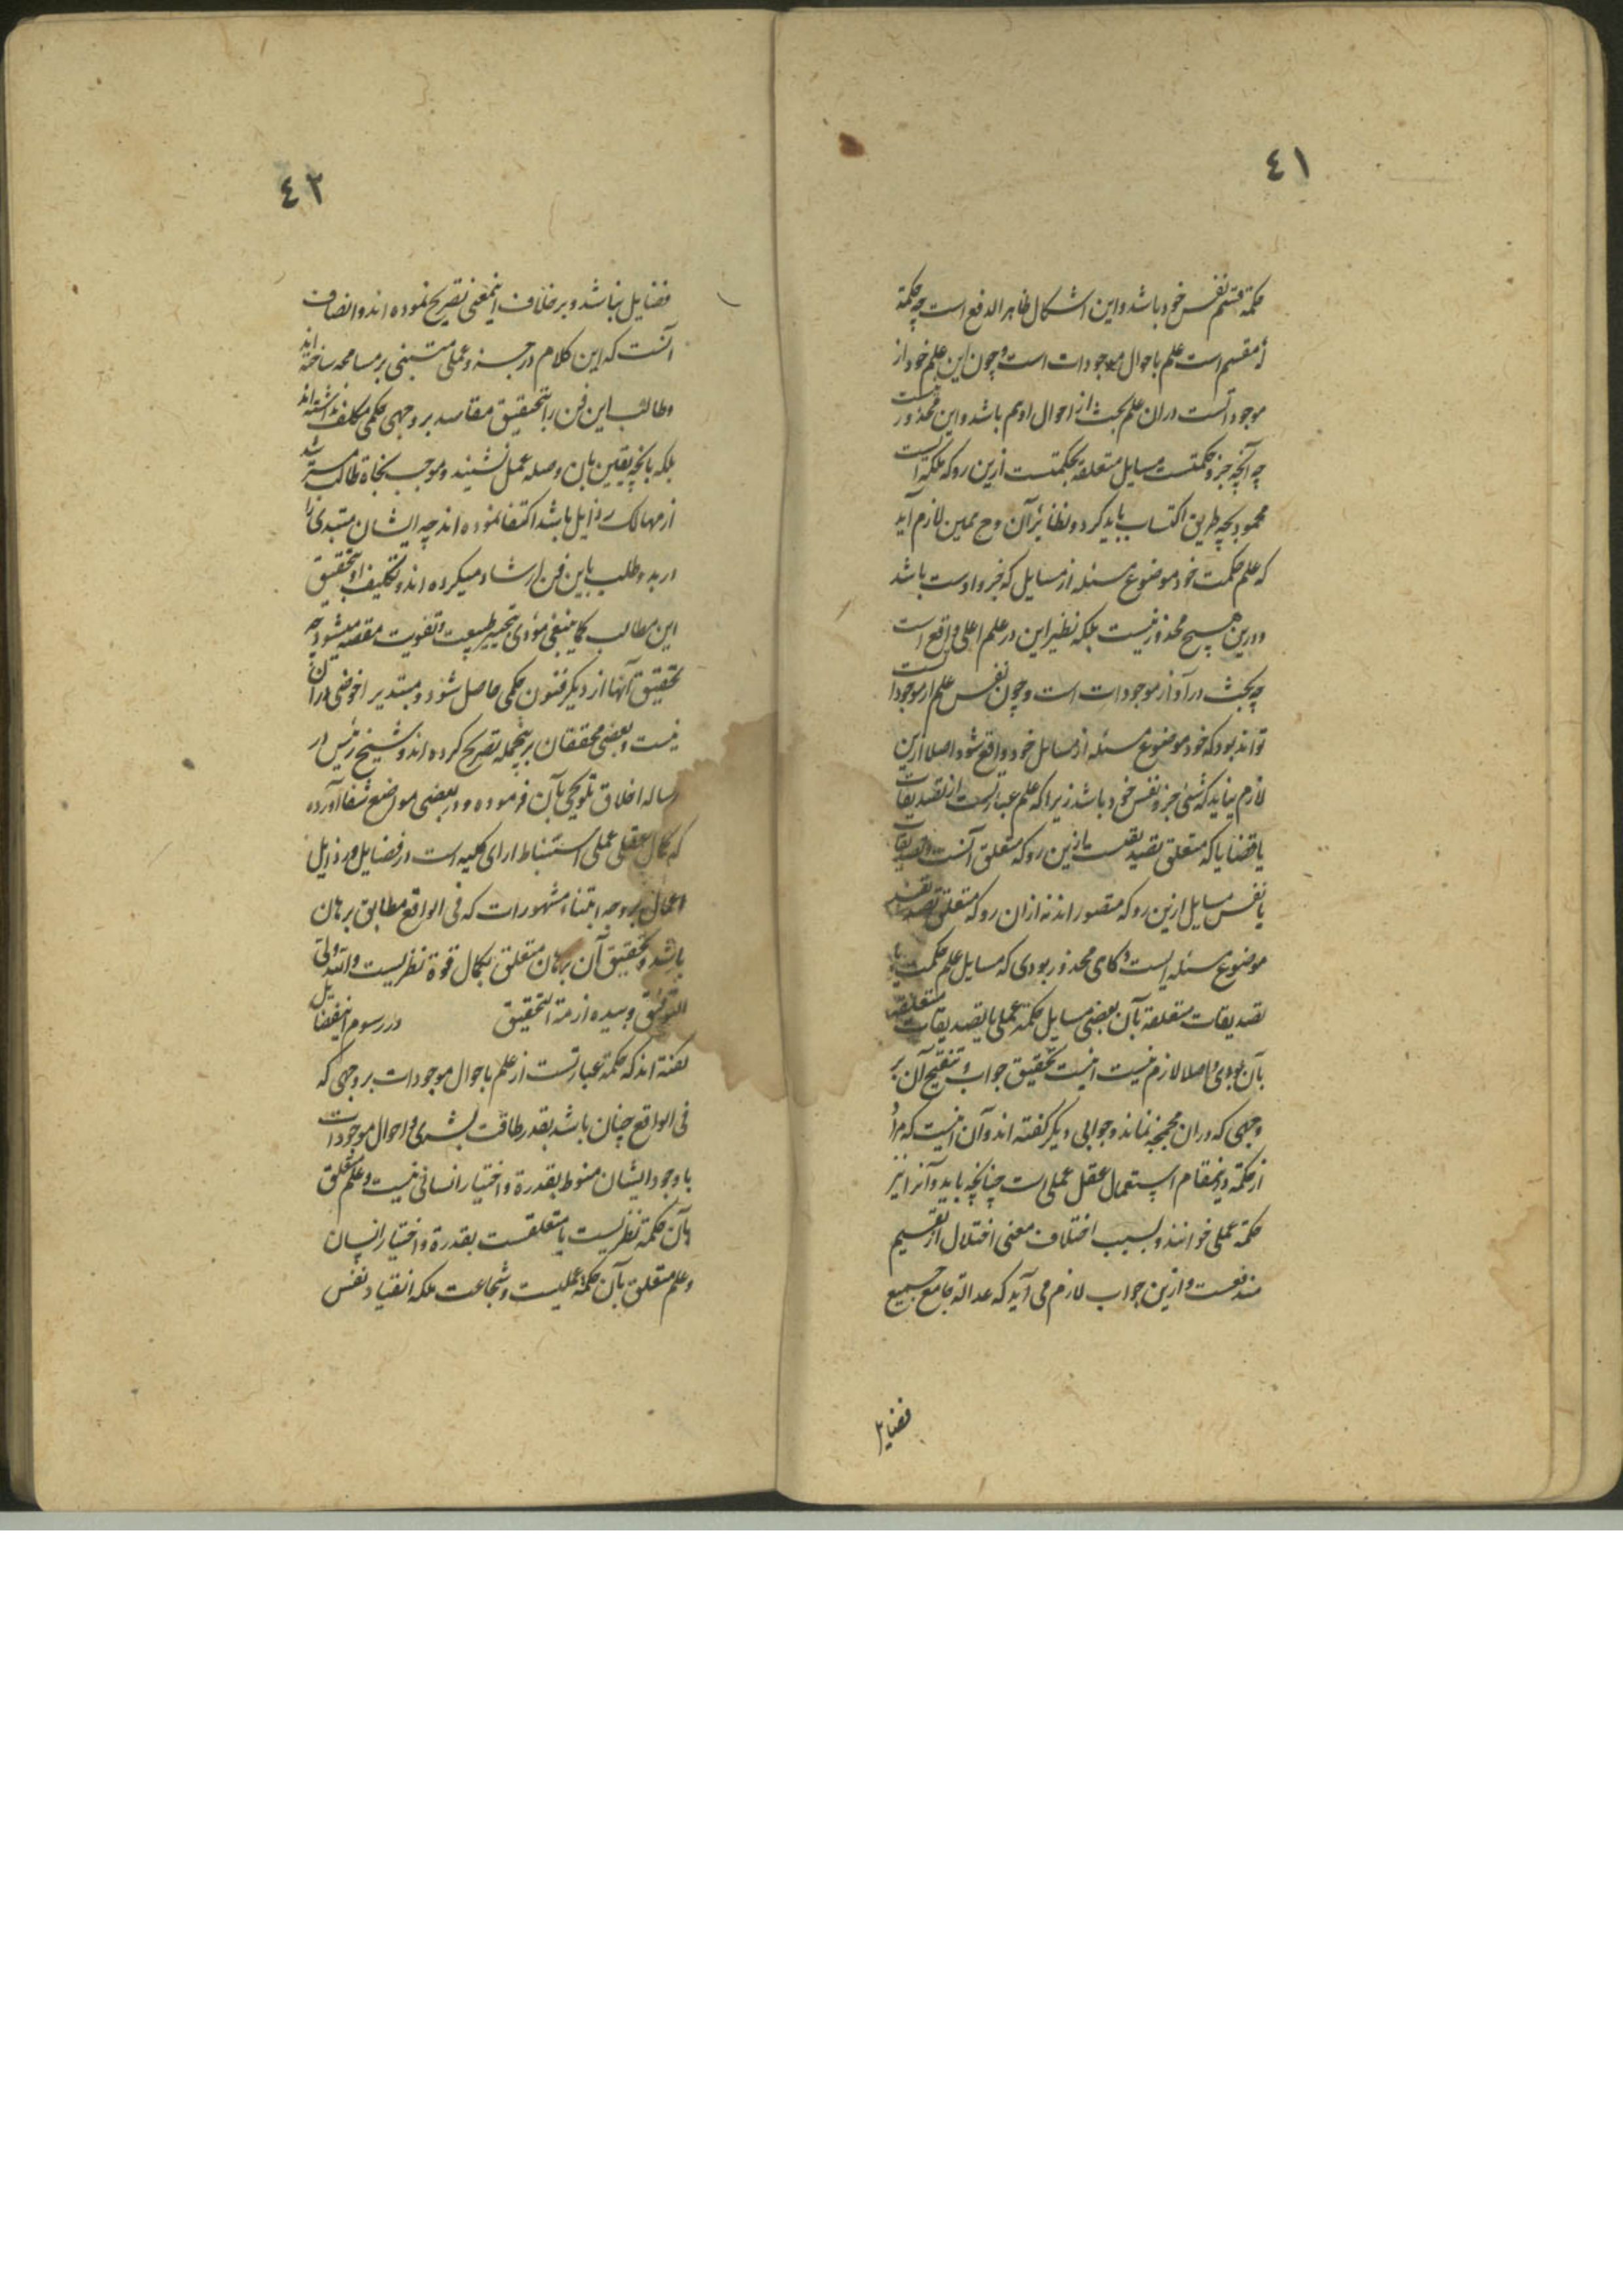 ٤١
حکمة قسم نفس خود باشد و این اشکال ظاهر الدفع است چه حکمة
که مقسم است علم باحوال موجودات است و چون این علم خود از
موجوداتست در آن علم بحث از احوال او هم باشد و این محذور نیست
چه آنچه جزو حکمتست مسایل متعلقه بحکمتست ازین رو که ملکه است
محمود بچه طریق اکتساب باید کرد و نظائر آن و ح همین لازم آید
که علم حکمت خود موضوع مسئله از مسایل که جزو اوست باشد
و درین هیچ محذور نیست بلکه نظیر این در علم اعلی واقع است
چه بحث در او از موجودات است و چون نفس علم از موجوداتست
تواند بود که خود موضوع مسئله از مسایل خود واقع شود اصلا ازین
لازم نیاید که شئی جزو نفس خود باشد زیرا که علم عبارتست از تصدیقات
یا قضایا که متعلق تصدیقست ازین رو که متعلق آنست و تصدیقات
یا نفس مسایل ازین رو که متصور اند نه ازان رو که متعلق تصدیقند
موضوع مسئله ایست و کاهی محذور بودی که مسایل علم حکمت یا
تصدیقات متعلقه بآن بعضی مسایل حکمة عملی یا تصدیقات متعلقه
بآن بودی و اصلا لازم نیست اینست تحقیق جواب و تنقیح آن بر
وجهی که دران مجمجه نماند و جوابی دیگر گفته اند و آن اینست که مراد
از حکمة درینمقام استعمال عقل عملی است چنانچه باید و آنرا نیز
حکمة عملی خوانند و بسبب اختلاف معنی اختلال از تقسیم
مندفعست و ازین جواب لازم می آید که عدالة جامع جمیع
فضایل
٤٢
فضایل نباشد و بر خلاف اینمعنی تصریح نموده اند و انصاف
آنست که این کلام در جزو عملی مبتنی بر مسامحه ساخته اند
و طالب این فن را بتحقیق مقاصد بر وجهی حکمی مکلف نداشته اند
بلکه بآنچه یقین بان وصله عمل نشیند و موجب نجاة طالب مسترشد
از مهالک رذایل باشد اکتفا نموده اند چه ایشان مبتدی را
در بدو طلب باین فن ارشاد میکرده اند و تکلیف او بتحقیق
این مطالب کما ینبغی مؤدی بتحییر طبیعت و تفویت مقصد میشود چه
تحقیق آنها از دیگر فنون حکمی حاصل شود و مبتدی را خوضی در آن
نیست و بعضی محققان برینجمله تصریح کرده اند و شیخ رئیس در
رساله اخلاق تلویحی بآن فرموده و در بعضی مواضع شفا آورده
که کمال عقلی عملی استنباط ارای کلیه است در فضایل و رذایل
اعمال بر وجه ابتناء مشهورات که فی الواقع مطابق برهان
باشد و تحقیق آن برهان متعلق بکمال قوة نظریست و الله ولی
التوفیق و بیده ازمة التحقیق در رسوم اینفضایل
گفته اند که حکمة عبارتست از علم باحوال موجودات بر وجهی که
فی الواقع چنان باشد بقدر طاقت بشری و احوال موجودات
یا وجود ایشان منوط بقدرة و اختیار انسانی نیست و علم متعلق
بآن حکمة نظریست یا متعلقست بقدرة و اختیار انسان
و علم متعلق بآن حکمة عملیست و شجاعت ملکه انقیاد نفس